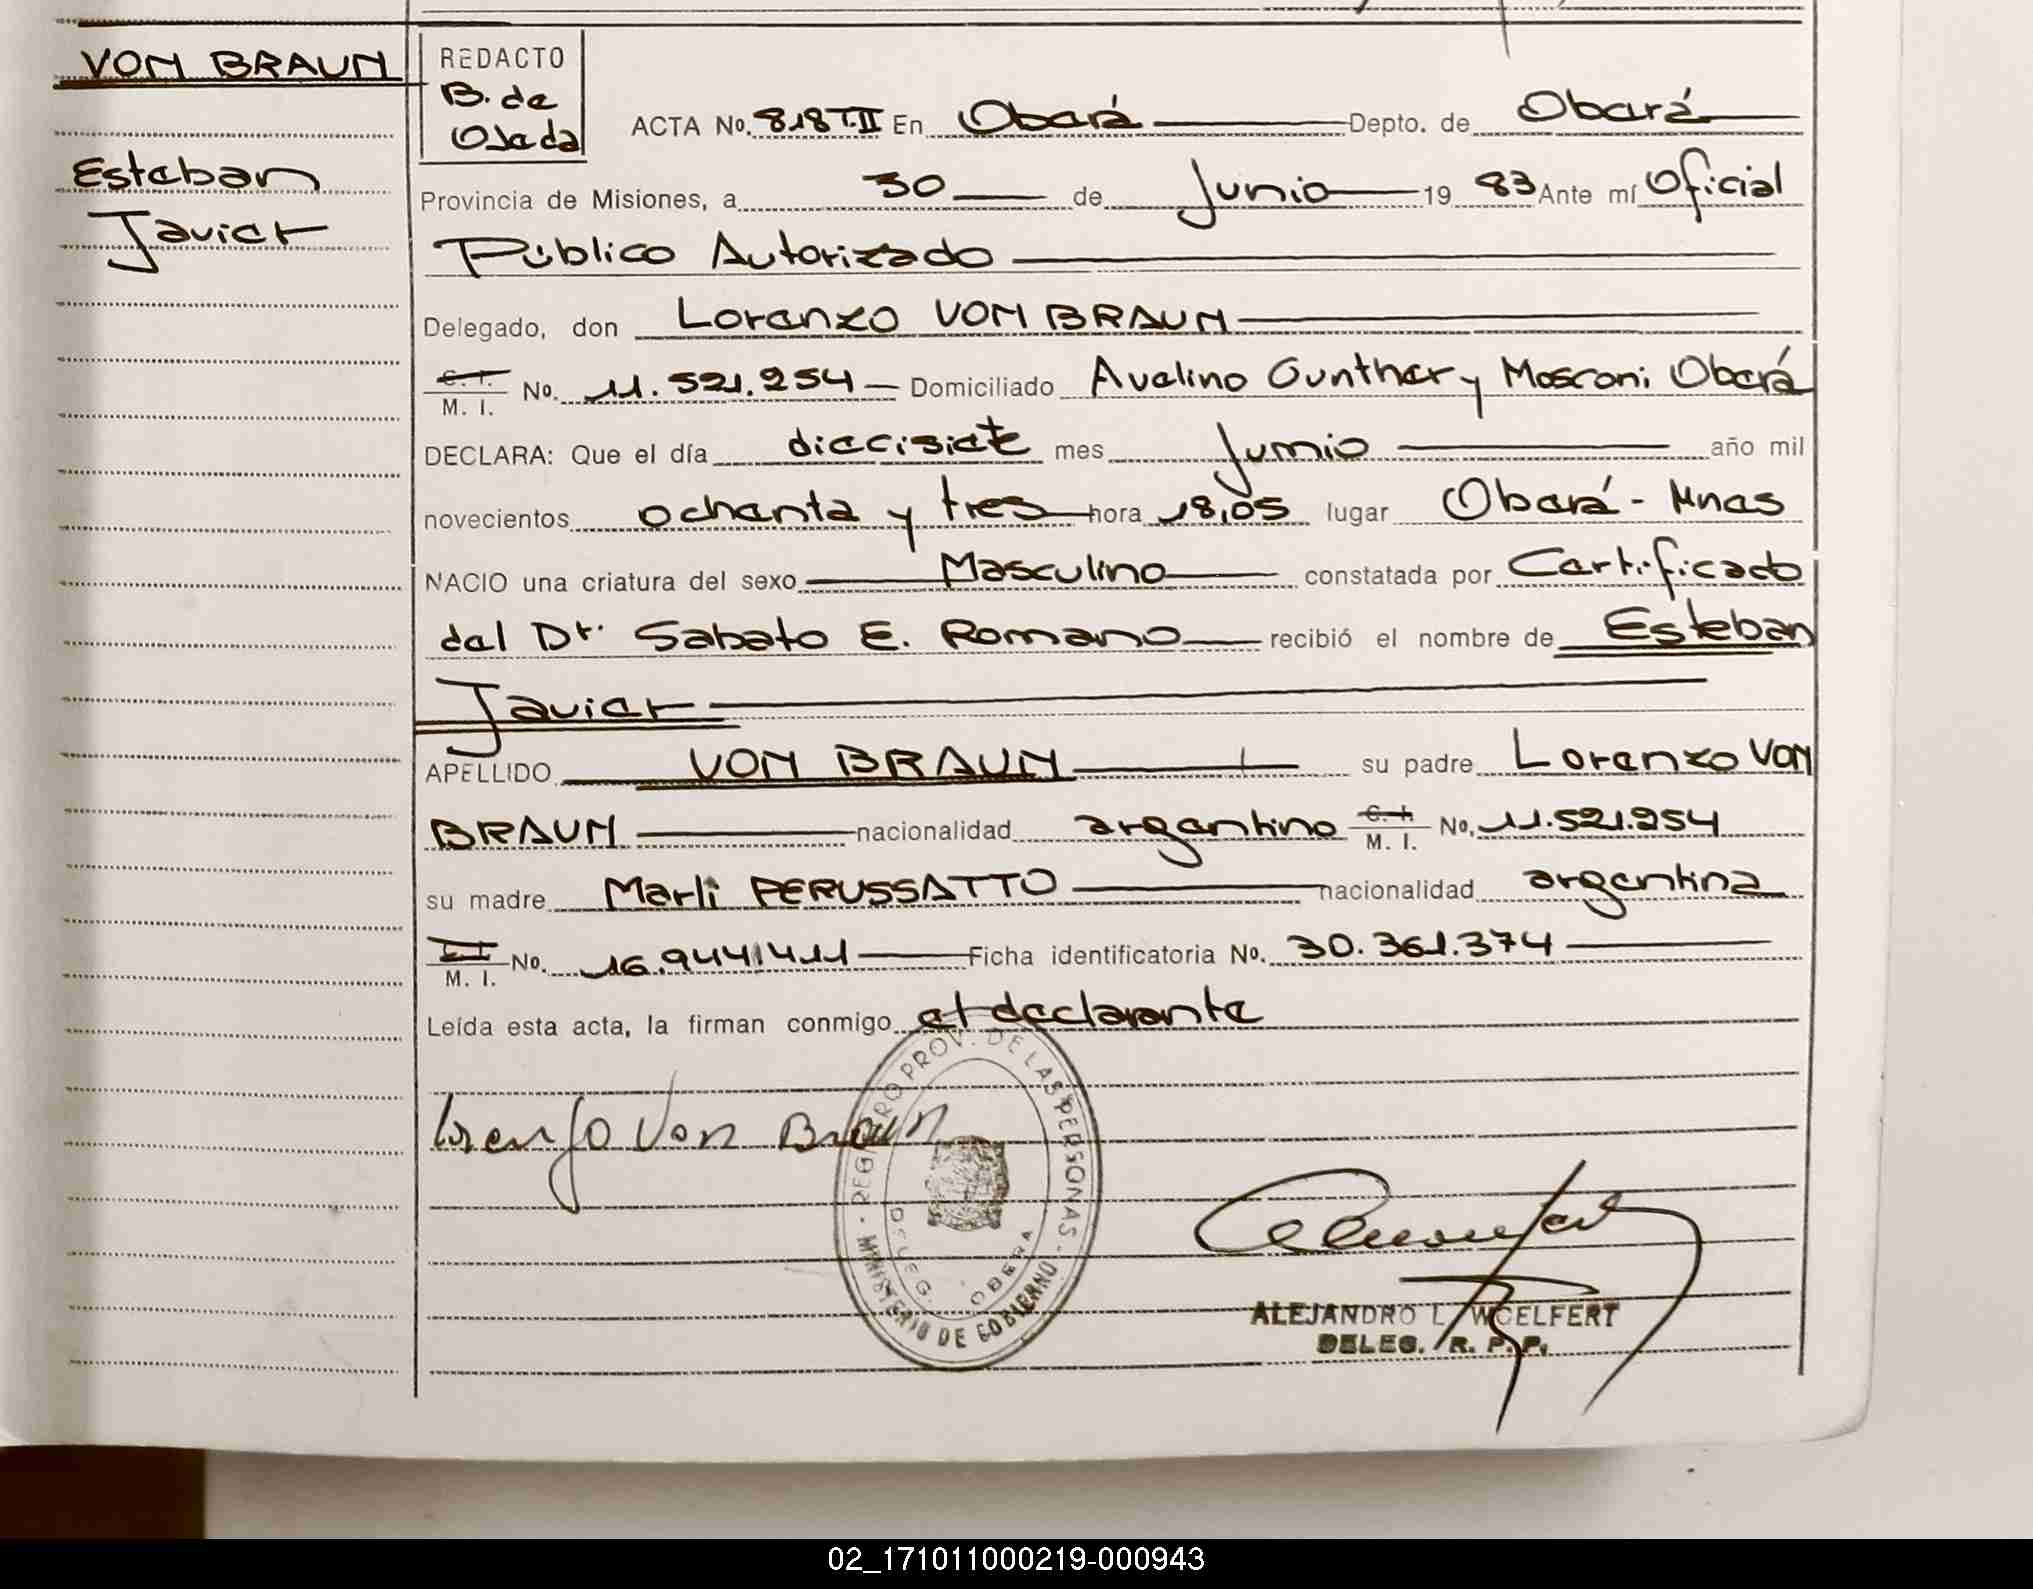 VON BRAUN
Esteban
Javier
REDACTO
B. de
Ojeda
ACTA No. 818 T.II En Oberá Depto. de Oberá
Provincia de Misiones, a 30 de Junio 19 83 Ante mí Oficial
Público Autorizado
Delegado, don Lorenzo VON BRAUN
C. I.
M. I. No. 11.521.254 Domiciliado Avelino Gunther y Mosconi Oberá
DECLARA: Que el día diecisiete mes Junio año mil
novecientos ochenta y tres hora 18,05 lugar Oberá - Mnes
NACIO una criatura del sexo Masculino constatada por Certificado
del Dr. Sabato E. Romano recibió el nombre de Esteban
Javier
APELLIDO VON BRAUN su padre Lorenzo VON
BRAUN nacionalidad argentino C. I. M. I. No. 11.521.254
su madre Marli PERUSSATTO nacionalidad argentina
C. I.
M. I. No. 16.944.411 Ficha identificatoria No. 30.361.374
Leída esta acta, la firman conmigo el declarante
Lorenzo Von Braun
REGISTRO PROV. DE LAS PERSONAS - MINISTERIO DE GOBIERNO -
DELEG. OBERA
ALEJANDRO L. WOELFERT
DELEG. R. P. P.
02_171011000219-000943